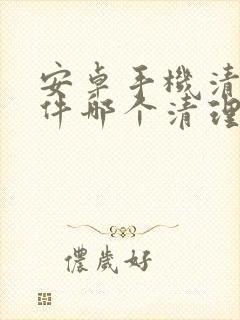 安卓手機清
件哪个清理
儂歲好